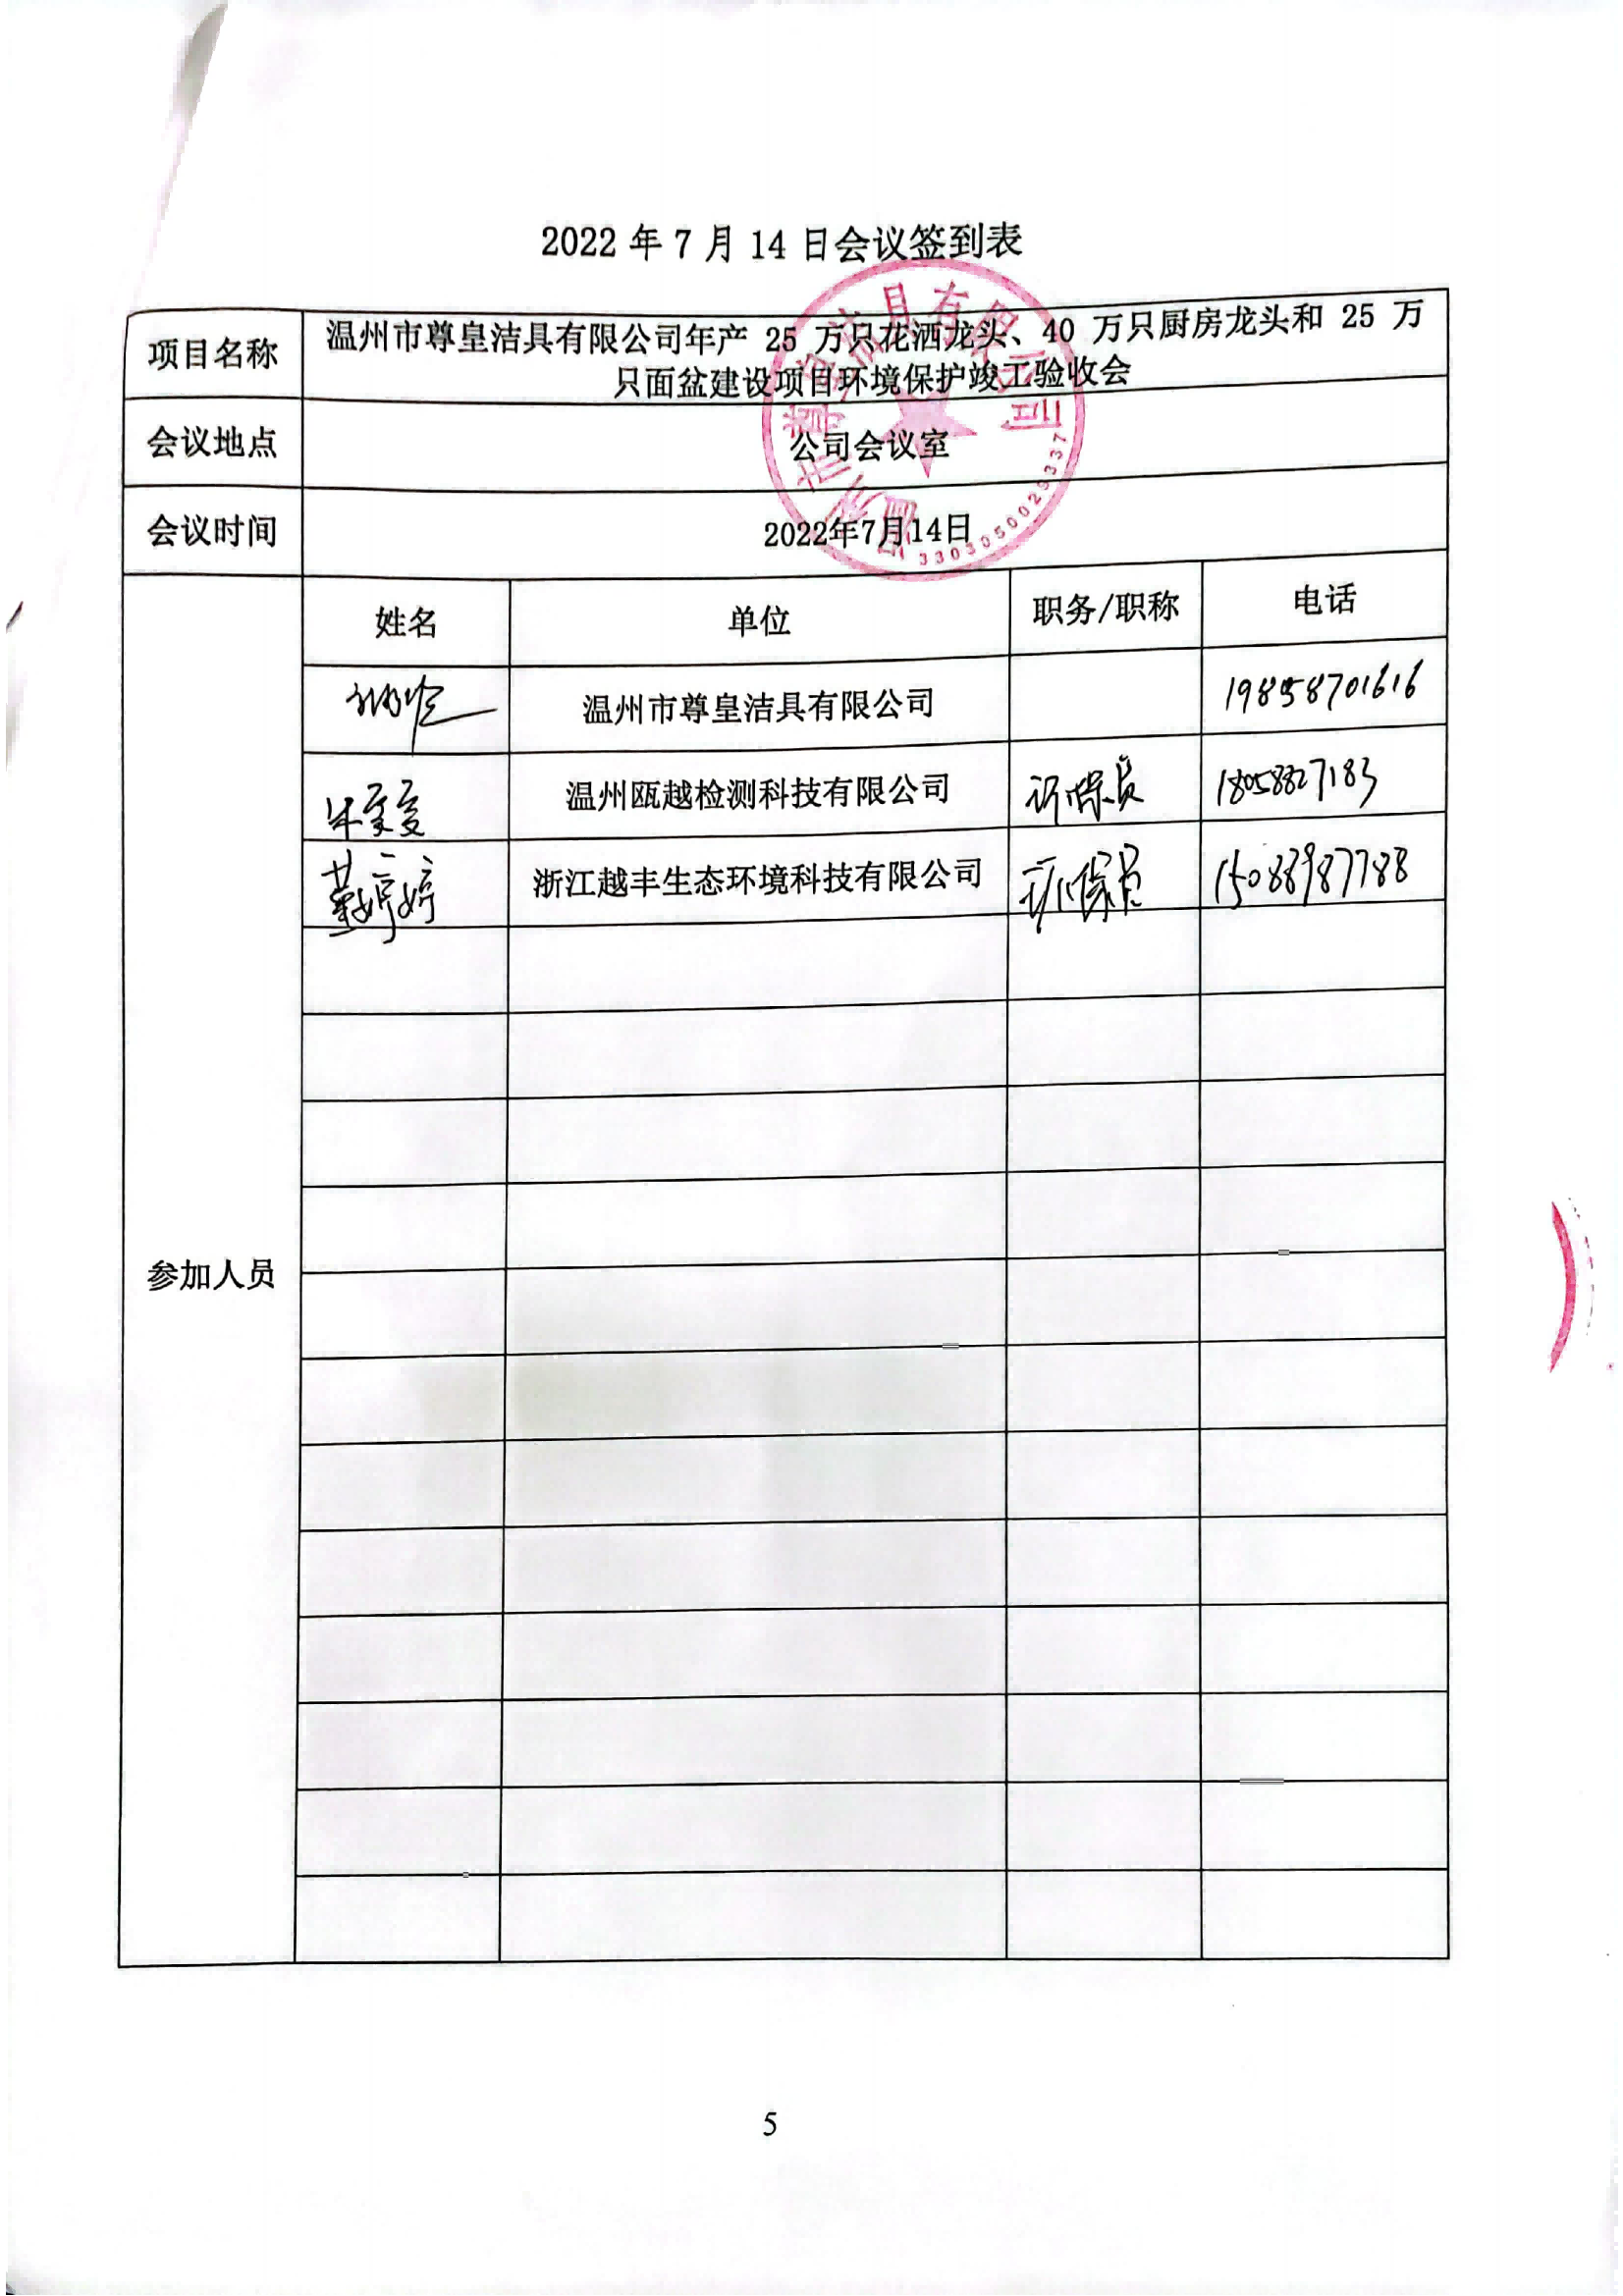 2022 年 7 月 14 日会议签到表
项目名称
温州市尊皇洁具有限公司年产 25 万只花洒龙头、40 万只厨房龙头和 25 万
只面盆建设项目环境保护竣工验收会
会议地点
公司会议室
会议时间
2022年7月14日
温州市尊皇洁具有限公司
3303050029337
参加人员
姓名 单位 职务/职称 电话
温州市尊皇洁具有限公司 19858701616
温州瓯越检测科技有限公司 环保员 18058827183
婷婷 浙江越丰生态环境科技有限公司 环保员 15088987788
5